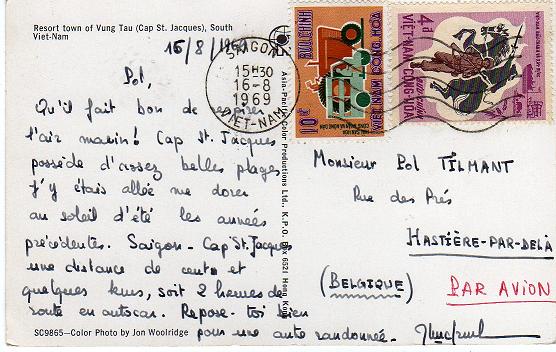 Resort town of Vung Tau (Cap St. Jacques), South
Viet-Nam
15/8/1969
Pol,
Qu'il fait bon de respirer
l'air marin! Cap St. Jacques
possède d'assez belles plages
J'y étais allée me dorer
au soleil d'été les années
précédentes. Saigon - Cap St. Jacques
une distance de cent et
quelques kms, soit 2 heures de
route en autocar. Repose-toi bien
pour une autre randonnée.
SC9865—Color Photo by Jon Woolridge
Asia-Pacific Color Productions Ltd., K.P.O. Box 6521 Hong Kong
SAIGON
15H30
16-8
1969
VIET-NAM
BUU-CHINH
10đ
VIỆT NAM CỘNG HÒA
4đ
VIỆT-NAM CỘNG-HÒA
Monsieur Pol TILMANT
Rue des Prés
HASTIÈRE-PAR-DELÀ
(BELGIQUE)
PAR AVION